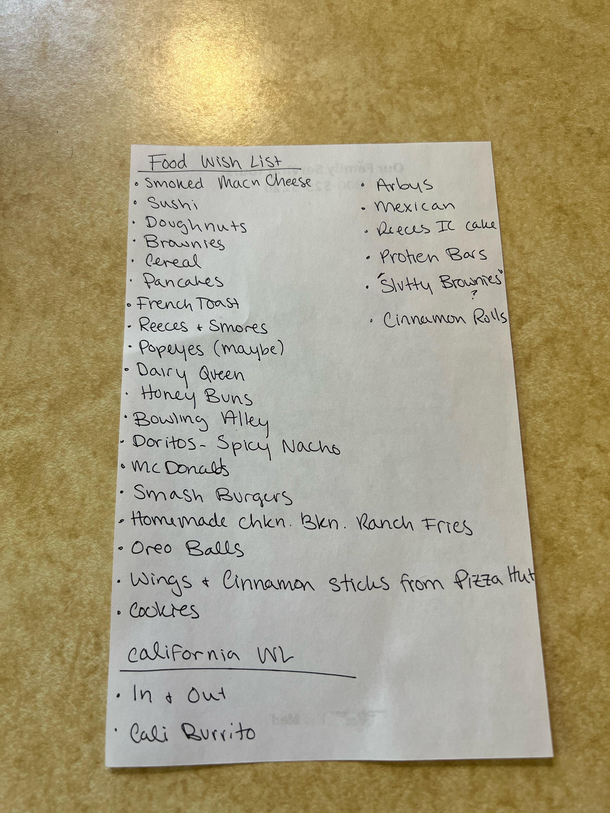 Food Wish List
• Smoked Mac n Cheese
• Sushi
• Doughnuts
• Brownies
• Cereal
• Pancakes
• French Toast
• Reeces + Smores
• Popeyes (maybe)
• Dairy Queen
• Honey Buns
• Bowling Alley
• Doritos - Spicy Nacho
• McDonalds
• Smash Burgers
• Homemade Chkn. Bkn. Ranch Fries
• Oreo Balls
• Wings + Cinnamon sticks from Pizza Hut
• Cookies
• Arbys
• Mexican
• Reeces IC cake
• Protien Bars
• "Slutty Brownies"
?
• Cinnamon Rolls
California WL
• In + Out
• Cali Burrito